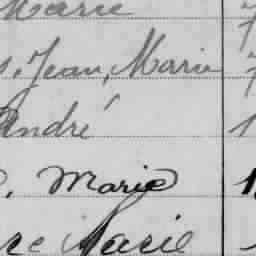 Marie
, Jean, Marie
André
, Marie
Marie